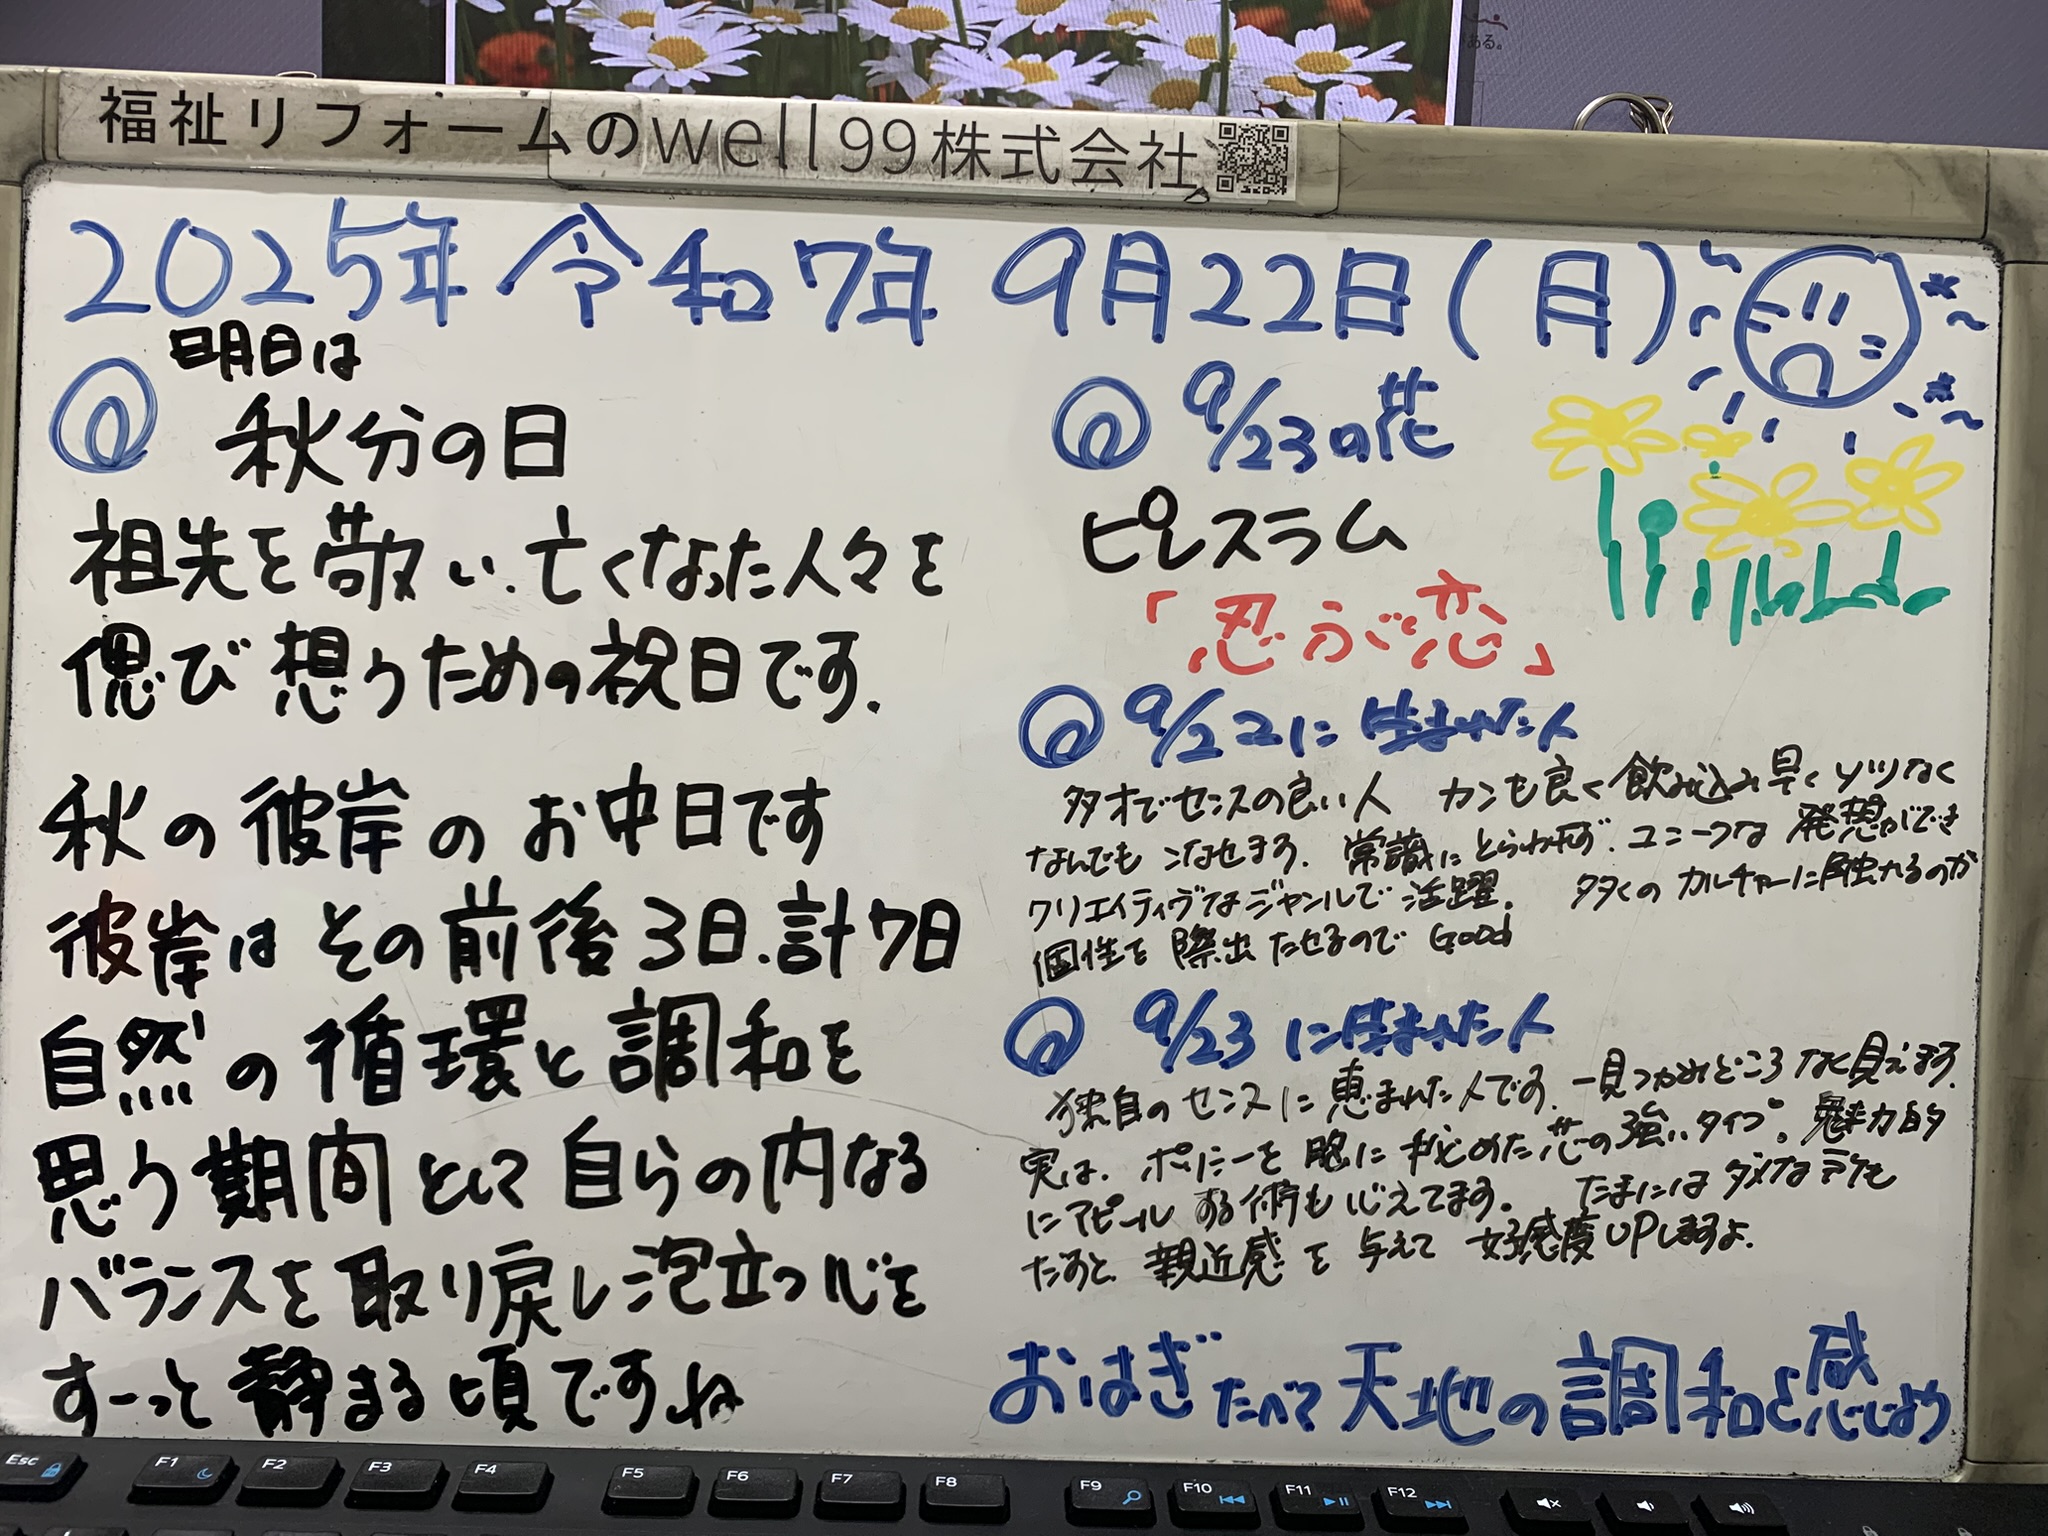 ある。
福祉リフォームのwell99株式会社
2025年 令和7年 9月22日(月)
明日は
秋分の日
祖先を敬い、亡くなった人々を
偲び想うための祝日です.
秋の彼岸のお中日です
彼岸はその前後3日、計7日
自然の循環と調和を
思う期間として自らの内なる
バランスを取り戻し泡立つ心を
すーっと静まる頃ですね
9/23の花
ピレスラム
「忍ぶ恋」
9/22に生まれた人
多才でセンスの良い人 カンも良く飲み込み早くソツなく
なんでもこなせます. 常識にとらわれず、ユニークな発想ができ
クリエイティヴなジャンルで活躍. 多くのカルチャーに触れるのが
個性を際出たせるので Good
9/23に生まれた人
独自のセンスに恵まれた人です. 一見つかみどころなく見えます.
実は、ポリシーを胸に秘めた芯の強いタイプ。魅力的
にアピールする術も心えてます。 たまにはダメな所も
だすと 親近感を与えて 好感度UPしますよ.
おはぎたべて天地の調和を感じよう
Esc
F1
F2
F3
F4
F5
F6
F7
F8
F9
F10
F11
F12